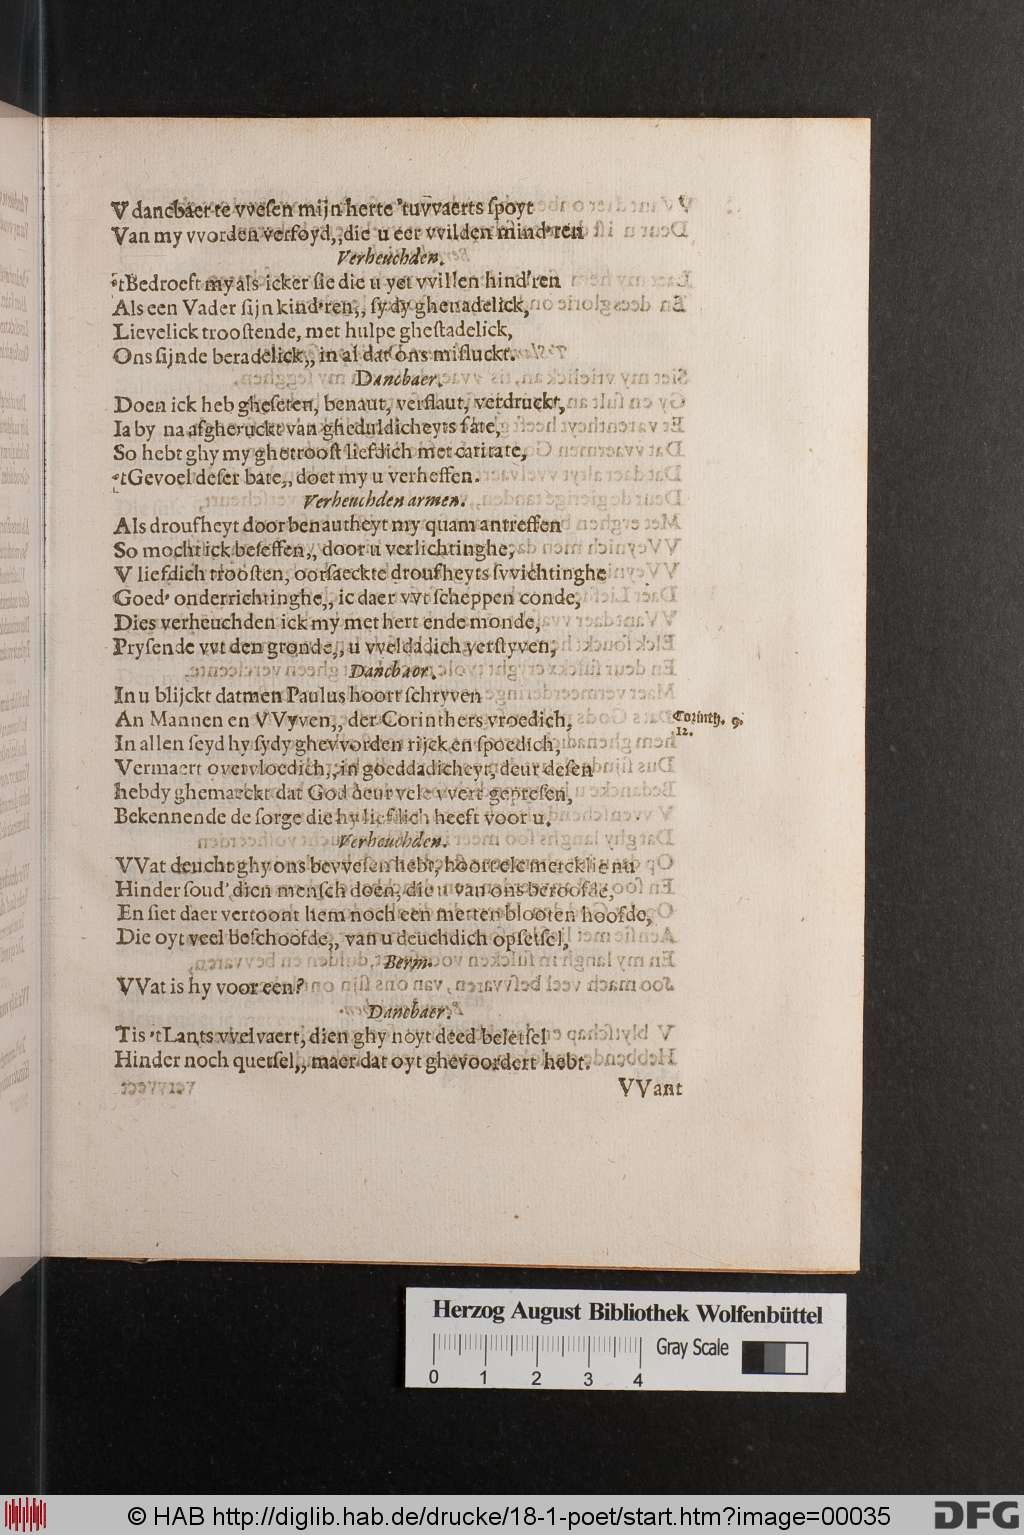 V dancbaer te vvesen mijn herte 'tuvvaerts spoyt
Van my vvorden versoyd,, die u eer vvilden mind'ren
Verheuchden.
'tBedroeft my als icker sie die u yet vvillen hind'ren
Als een Vader sijn kind'ren,, sydy ghenadelick,
Lievelick troostende, met hulpe ghestadelick,
Ons sijnde beradelick,, in al dat ons misluckt.
Dancbaer.
Doen ick heb gheseten, benaut, verflaut, verdruckt,
Ia by na afgheruckt van gheduldicheyts sate,
So hebt ghy my ghetroost liefdich met caritate,
'tGevoel deser bate,, doet my u verheffen.
Verheuchden armen.
Als droufheyt door benautheyt my quam antreffen
So mocht ick beseffen,, door u verlichtinghe,
V liefdich troosten, oorsaeckte droufheyts svvichtinghe
Goed' onderrichtinghe,, ic daer vvt scheppen conde,
Dies verheuchden ick my met hert ende monde,
Prysende vvt den gronde,, u vveldadich verstyven,
Dancbaer.
In u blijckt datmen Paulus hoort schryven
An Mannen en VVyven,, der Corinthers vroedich,
Corinth. 9.
12.
In allen seyd hy sydy ghevvorden rijck en spoedich,
Vermaert overvloedich,, in goeddadicheyt, deur desen
hebdy ghemaeckt dat God deur vele vvert gepresen,
Bekennende de sorge die hy lieflich heeft voor u.
Verheuchden.
VVat deucht ghy ons bevvesen hebt, hoort elc mercklic nu
Hinder soud' dien mensch doen, die u van ons beroofde,
En siet daer vertoont hem noch een metten blooten hoofde,
Die oyt veel beschoofde,, van u deuchdich opsetsel,
Berm.
VVat is hy voor een?
Dancbaer.
Tis 'tLants vvelvaert, dien ghy noyt deed beletsel
Hinder noch quetsel,, maer dat oyt ghevoordert hebt.
VVant
Herzog August Bibliothek Wolfenbüttel
Gray Scale
0 1 2 3 4
© HAB http://diglib.hab.de/drucke/18-1-poet/start.htm?image=00035
DFG